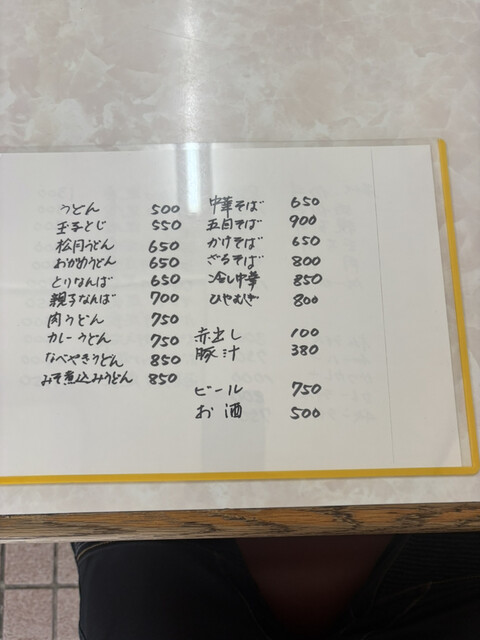 うどん 500
玉子とじ 550
松月うどん 650
おかめうどん 650
とりなんば 650
親子なんば 700
肉うどん 750
カレーうどん 750
なべやきうどん 850
みそ煮込みうどん 850
中華そば 650
五目そば 900
かけそば 650
ざるそば 800
冷し中華 850
ひやむぎ 800
赤出し 100
豚汁 380
ビール 750
お酒 500